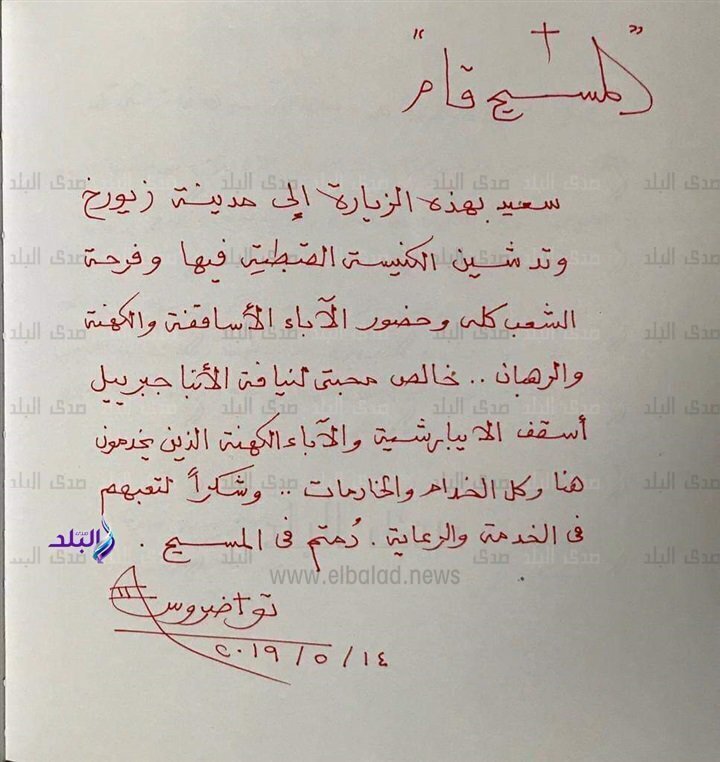 "المسيح قام"
سعيد بهذه الزيارة إلى مدينة زيورخ
وتدشين الكنيسة القبطية فيها وفرحة
الشعب كله وحضور الآباء الأساقفة والكهنة
والرهبان .. خالص محبتى لنيافة الأنبا جبرييل
أسقف الايبارشية والآباء الكهنة الذين يخدمون
هنا وكل الخدام والخادمات .. وشكراً لتعبهم
فى الخدمة والرعاية . دُمتم فى المسيح .
صدى البلد
www.elbalad.news
تواضروس
١٤ / ٥ / ٢٠١٩